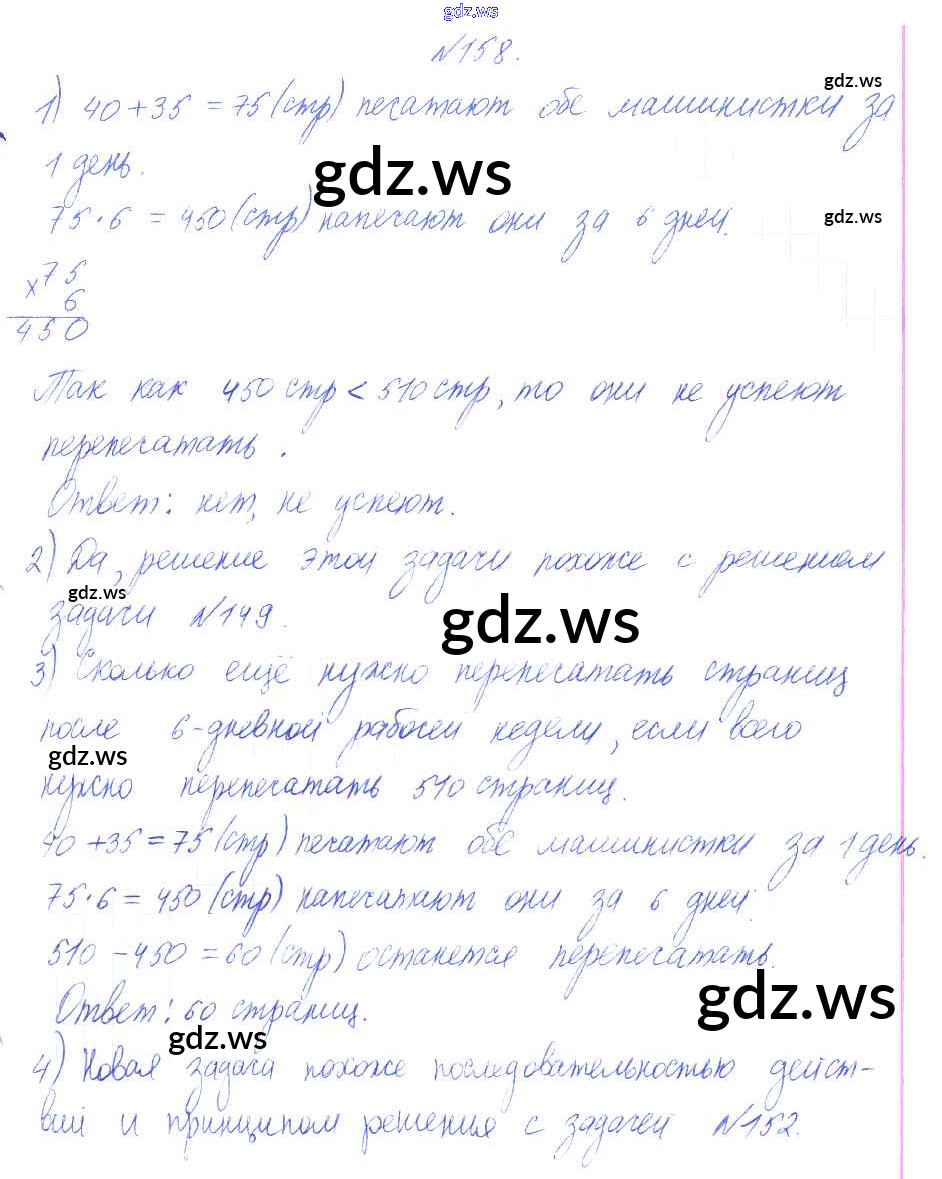 gdz.ws
№158.
gdz.ws
1) 40+35 = 75 (стр) печатают обе машинистки за
1 день.
gdz.ws
75·6 = 450 (стр) напечатают они за 6 дней.
gdz.ws
×75
6
450
Так как 450 стр < 510 стр, то они не успеют
перепечатать.
Ответ: нет, не успеют.
2) Да, решение этой задачи похоже с решением
gdz.ws
задачи №149.
gdz.ws
3) Сколько ещё нужно перепечатать страниц
после 6-дневной рабочей недели, если всего
gdz.ws
нужно перепечатать 510 страниц.
40+35=75 (стр) печатают обе машинистки за 1 день.
75·6=450 (стр) напечатают они за 6 дней.
510-450=60 (стр) останется перепечатать.
gdz.ws
Ответ: 60 страниц.
gdz.ws
4) Новая задача похоже последовательностью дейст-
вий и принципом решения с задачей №152.